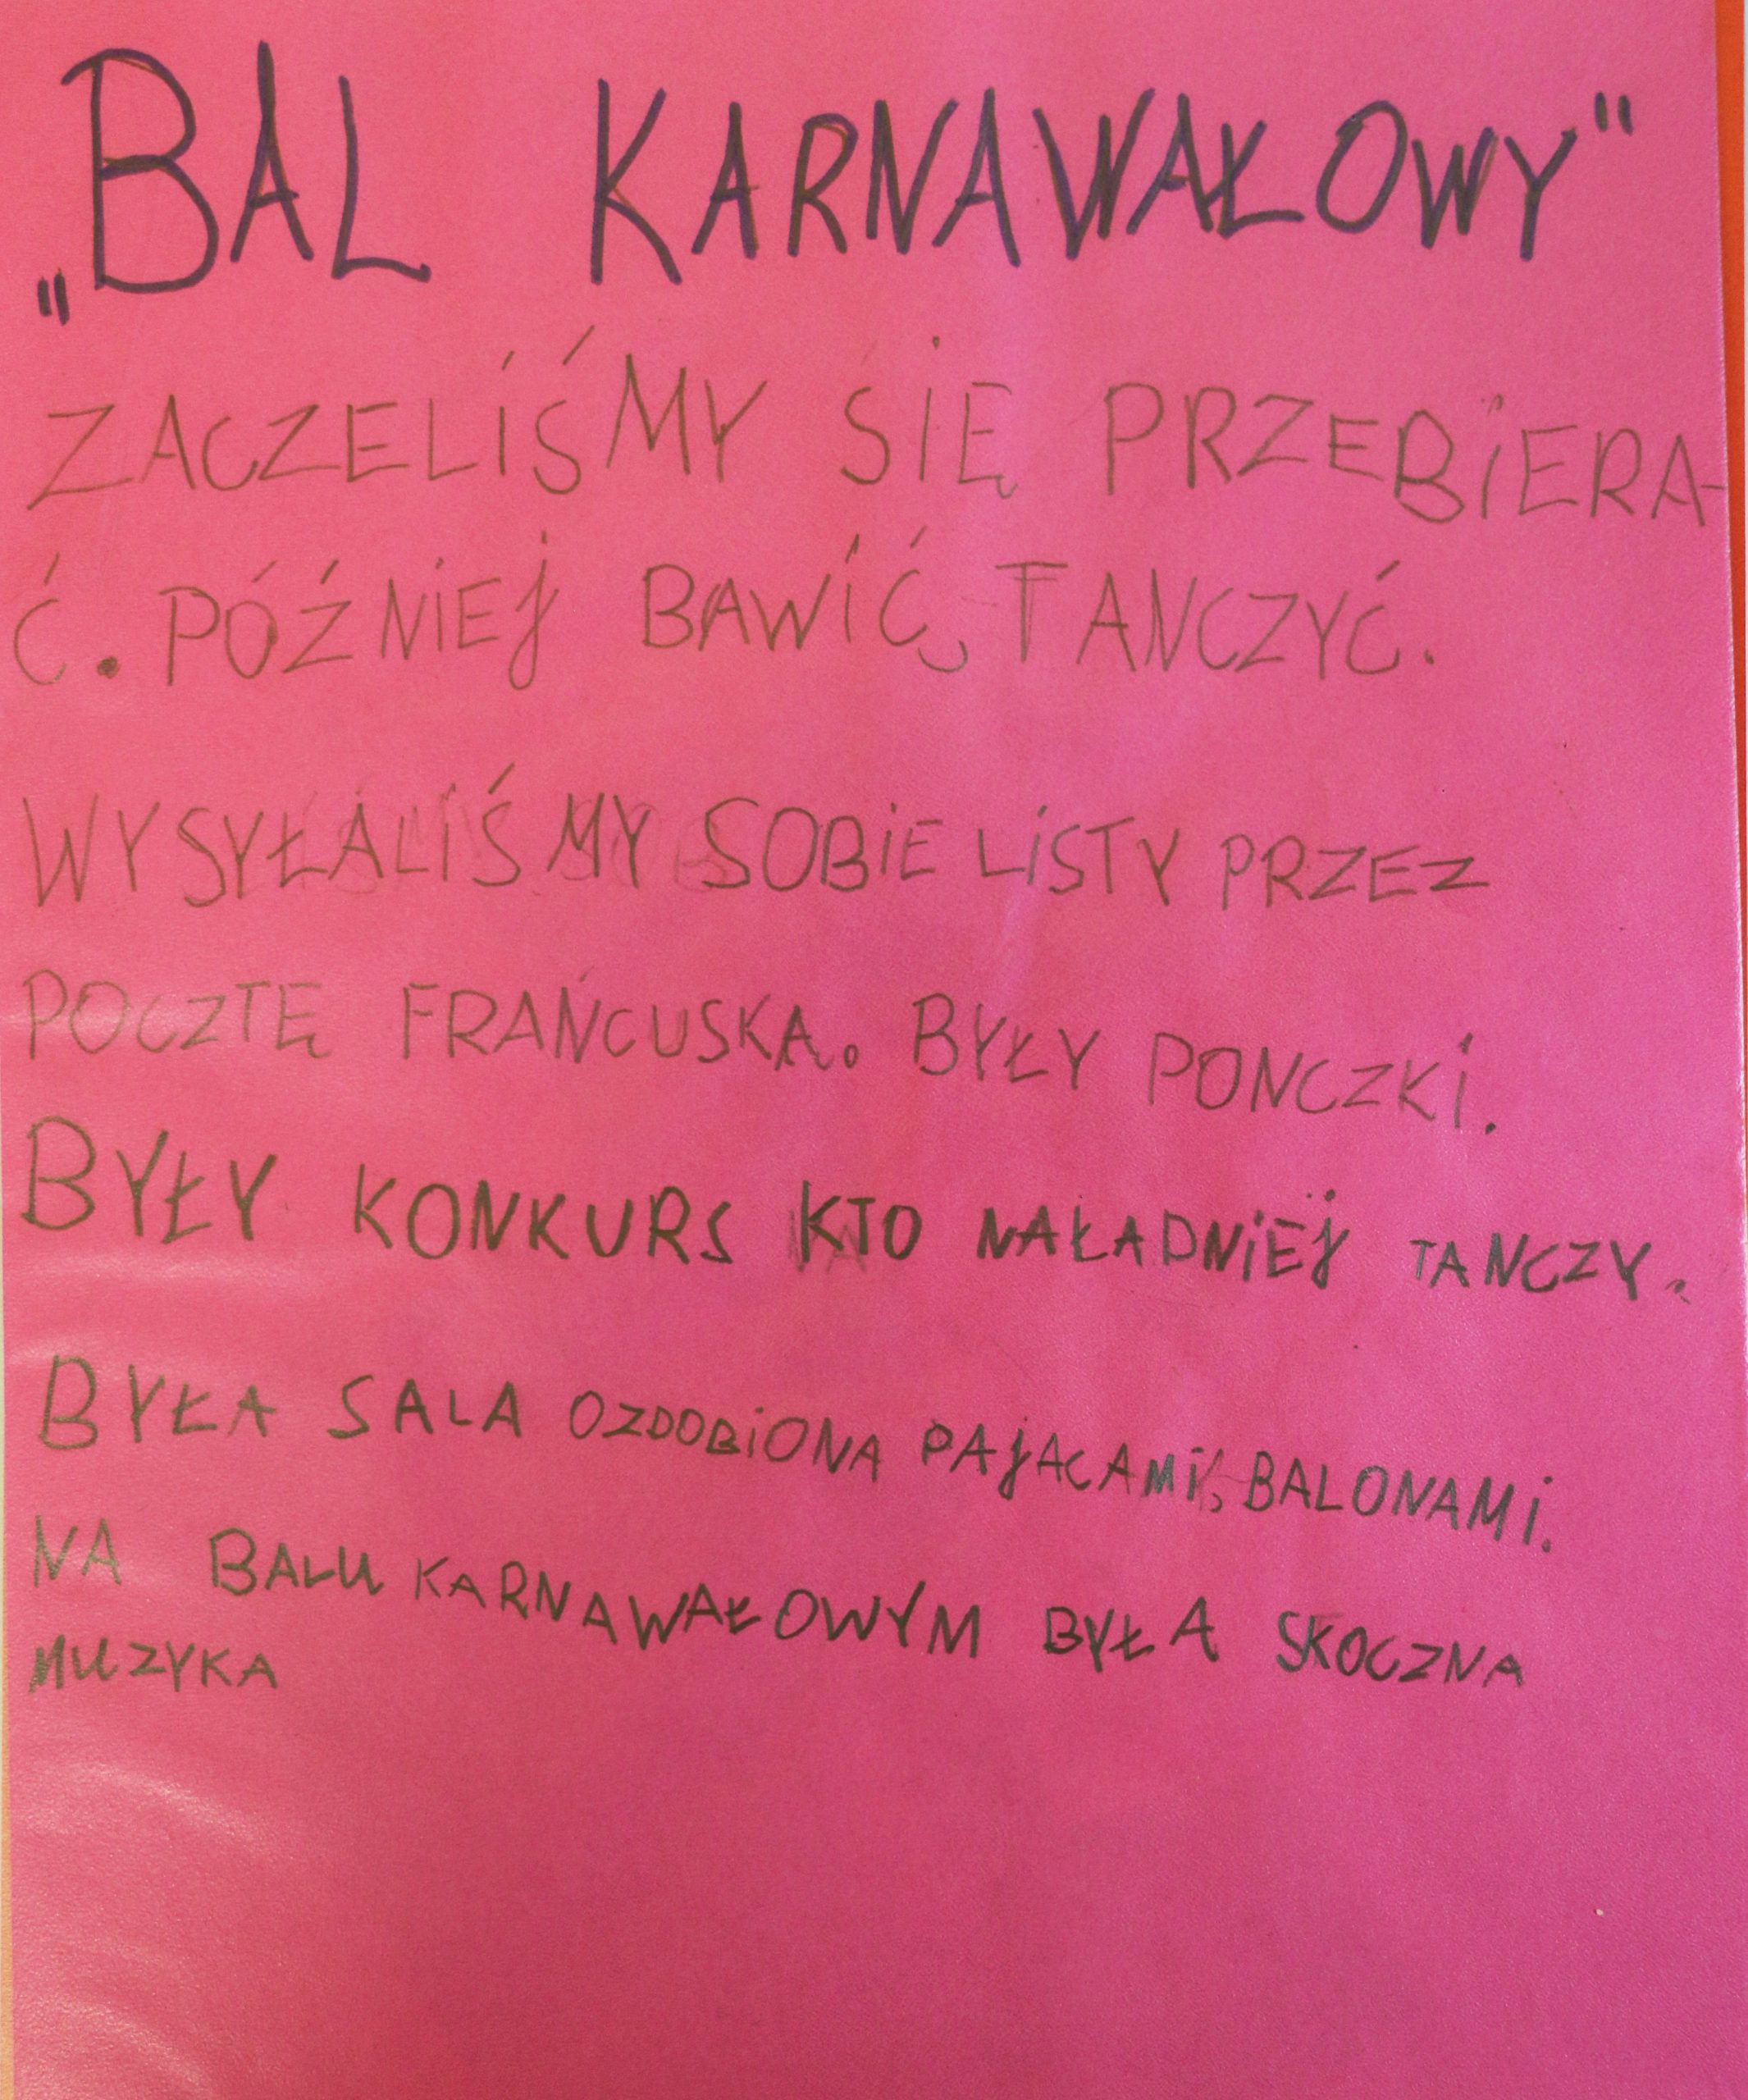 „BAL KARNAWAŁOWY"
ZACZELIŚMY SIĘ PRZEBIERA-
Ć. PÓŹNIEJ BAWIĆ, TANCZYĆ.
WYSYŁALIŚMY SOBIE LISTY PRZEZ
POCZTĘ FRAŃCUSKA. BYŁY PONCZKI.
BYŁY KONKURS KTO NAŁADNIEJ TANCZY.
BYŁA SALA OZDOBIONA PAJACAMI, BALONAMI.
NA BALU KARNAWAŁOWYM BYŁA SKOCZNA
MUZYKA